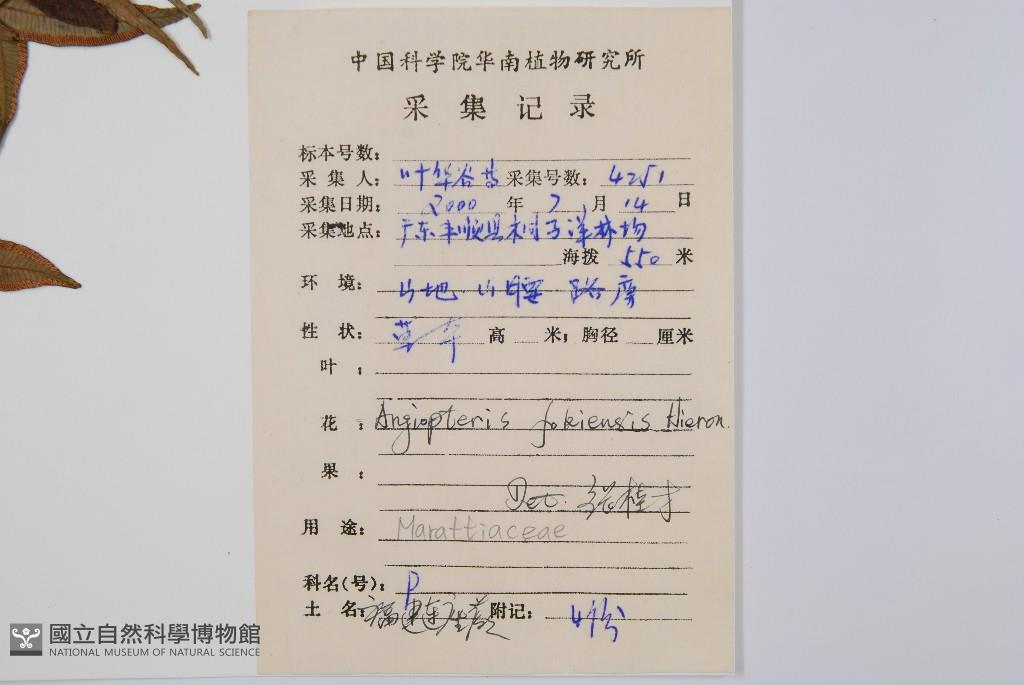 中国科学院华南植物研究所
采集记录
标本号数:
采集人: 叶华谷等 采集号数: 4251
采集日期: 2000 年 7 月 14 日
采集地点: 广东丰顺县 子洋林场
海拨 550 米
环境: 山地 山腰 路旁
性状: 草本 高 米; 胸径 厘米
叶:
花: Angiopteris fokiensis Hieron.
果:
Det. 桂才
用途: Marattiaceae
科名(号): P
土名: 福建莲座蕨 附记: 4份
國立自然科學博物館
NATIONAL MUSEUM OF NATURAL SCIENCE